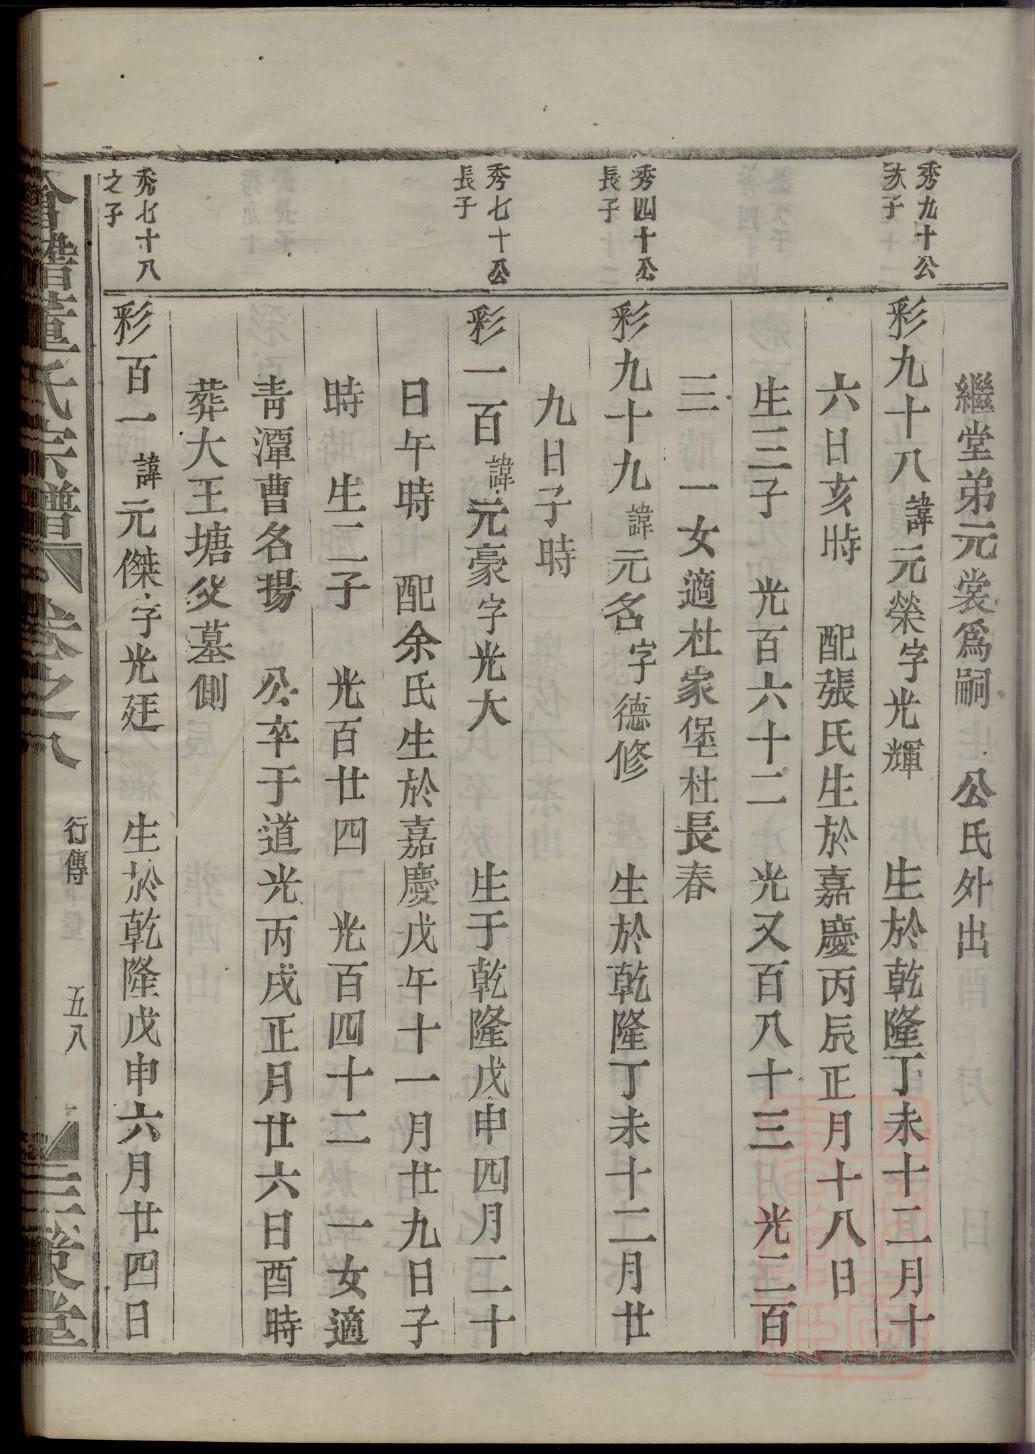 繼堂弟元裳爲嗣 公氏外出
秀九十公
次子
彩九十八諱元榮字光輝 生於乾隆丁未十二月十
六日亥時 配張氏生於嘉慶丙辰正月十八日
生三子 光百六十二 光又百八十三 光二百
三 一女適杜家堡杜長春
秀四十公
長子
彩九十九諱元名字德修 生於乾隆丁未十二月廿
九日子時
秀七十公
長子
彩一百諱元豪字光大 生于乾隆戊申四月二十
日午時 配余氏生於嘉慶戊午十一月廿九日子
時 生二子 光百廿四 光百四十二 一女適
靑潭曹名揚 公卒于道光丙戌正月廿六日酉時
葬大王塘父墓側
秀七十八
之子
彩百一諱元傑字光廷 生於乾隆戊申六月廿四日
董氏宗譜 卷之八 行傳 五八 三策堂